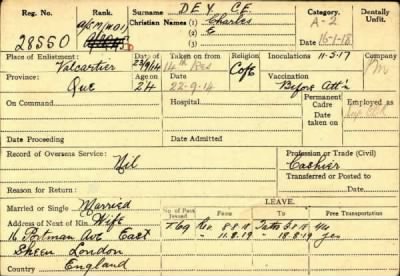 Reg. No. 28550
A/S M (W.O.1)
Surname DEY. C.E.
Christian Names (1) Charles
(2) E
(3)
Category. A-2
Date 16-1-18
Dentally Unfit.
Place of Enlistment: Valcartier
Date of 23/9/14
Taken on from 14th Res
Religion Cof E
Inoculations 11-5-17
Company
Province: Que
Age on 24
22-9-14
Vaccination Before Att'n
On Command.
Hospital.
Permanent Cadre
Date taken on
Employed as
Date Proceeding
Date Admitted
Record of Overseas Service: Nil
Profession or Trade (Civil) Cashier
Transferred or Posted to
Reason for Return:
Date.
Married or Single Married
LEAVE.
Address of Next of Kin Wife
No. of Pass Issued From To Free Transportation
16 Portman Ave East
Sheen London
England
8-8-18
11.8.19 18.8.19 yes